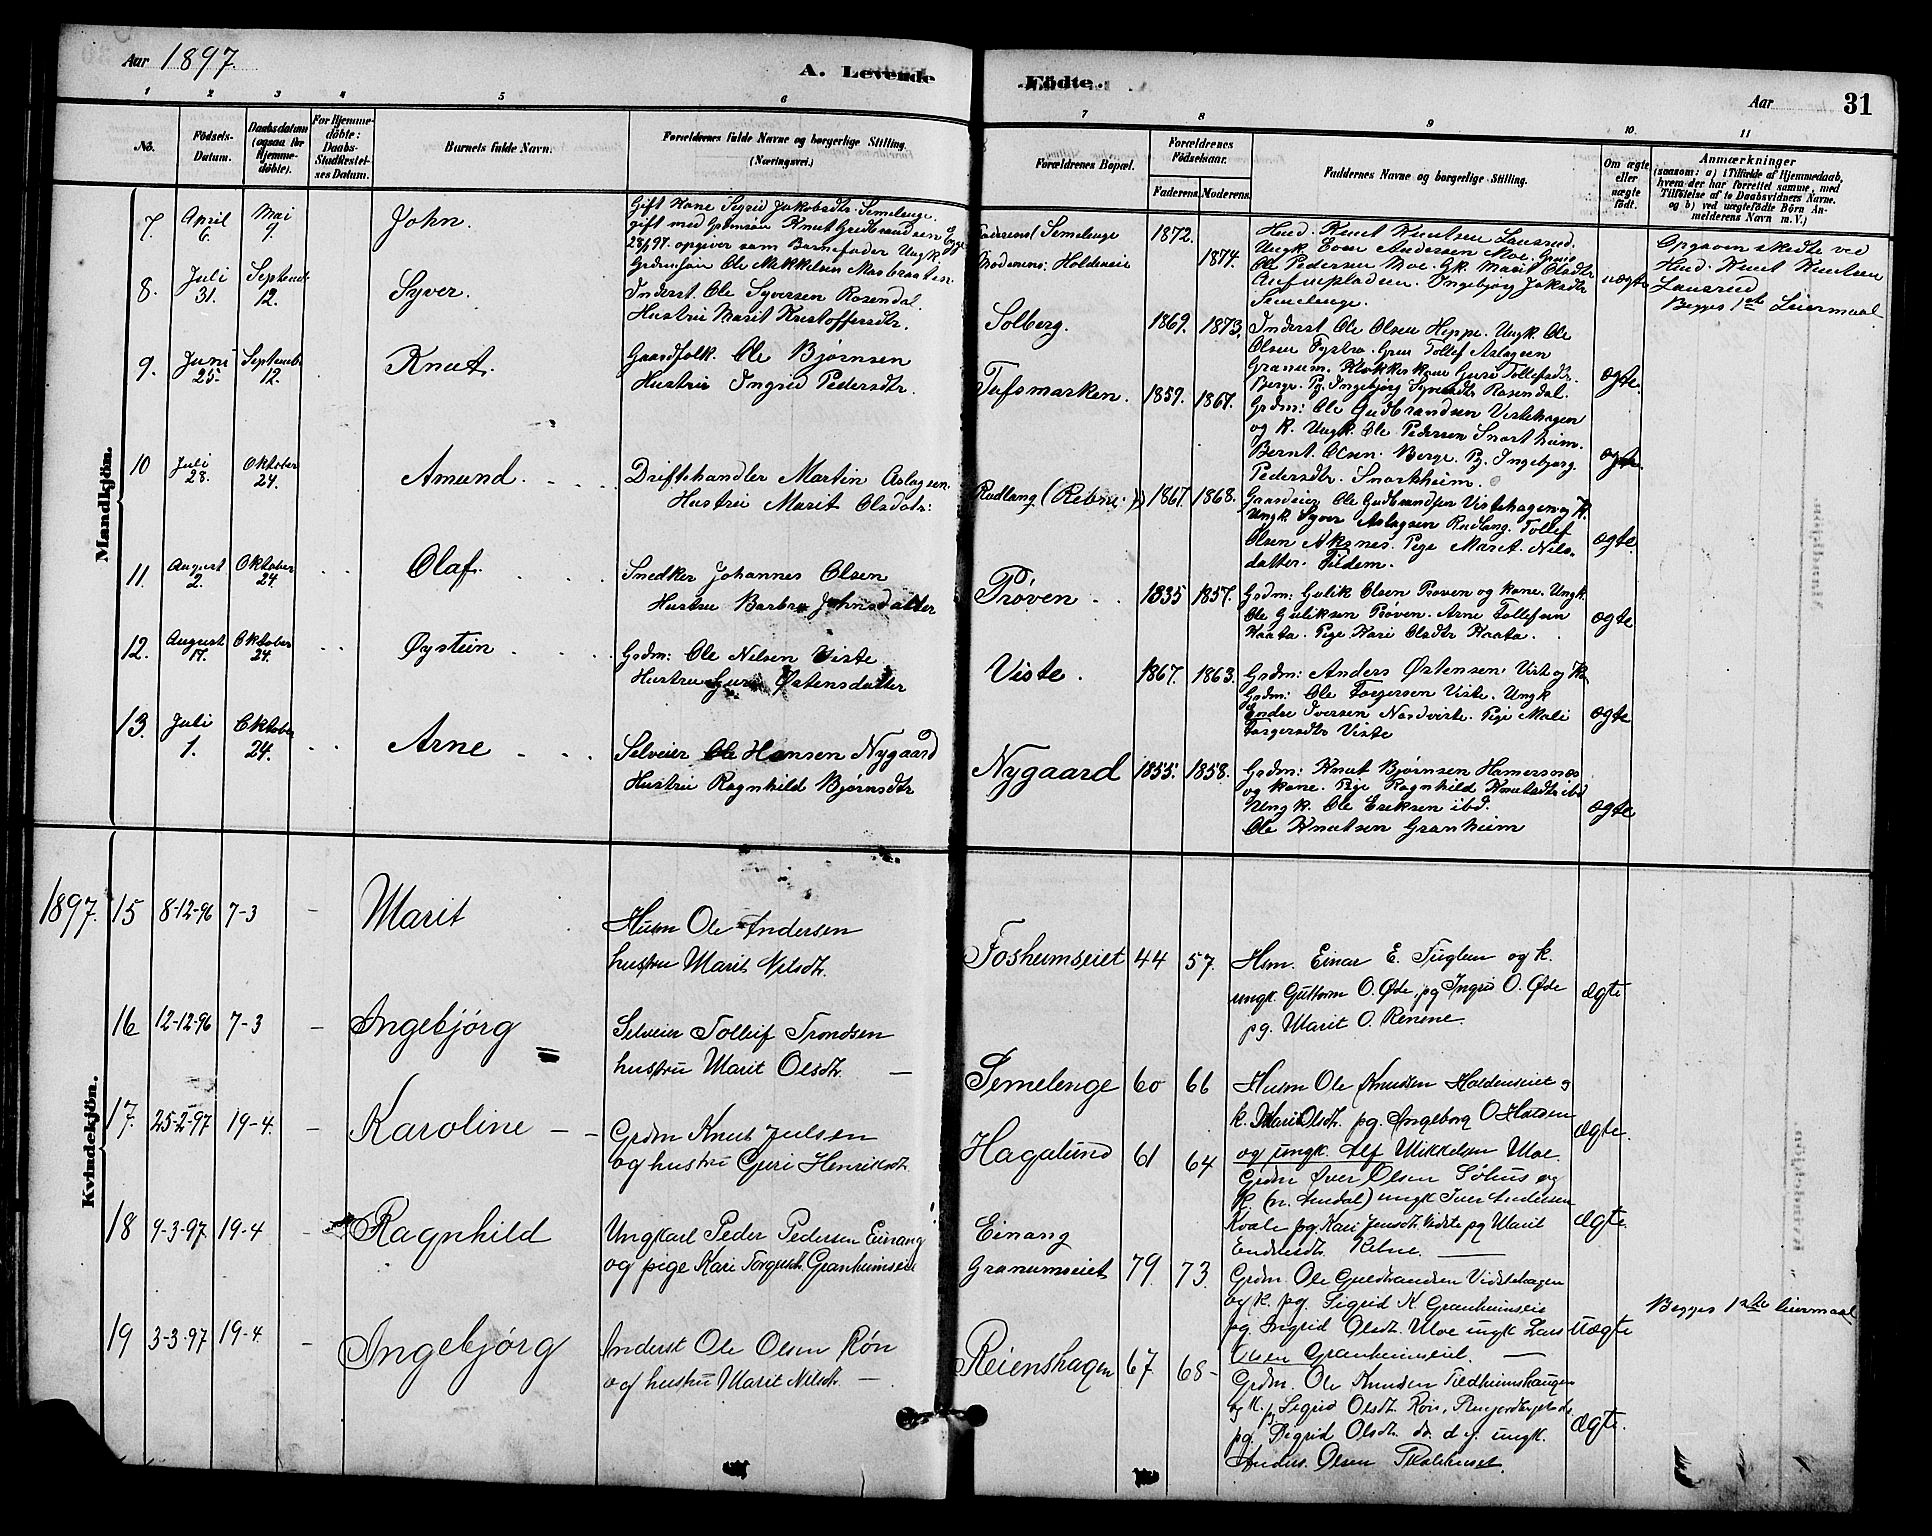 Aar 1897.
A. Levende Födte.
Aar
31
1 2 3 4 5 6 7 8 9 10 11
No.
Födsels-Datum.
Daabsdatum (ogsaa for Hjemmedöbte).
For Hjemmedöbte: Daabs-Stadfestelses Datum.
Barnets fulde Navn.
Forældrenes fulde Navne og borgerlige Stilling. (Næringsvei.)
Forældrenes Bopæl.
Forældrenes Födselsaar.
Faderens. Moderens.
Faddernes Navne og borgerlige Stilling.
Om ægte eller uægte födt.
Anmærkninger
(saasom: a) i Tilfælde af Hjemmedaab, hvem der har forrettet samme, med Tilföielse af to Daabsvidners Navne, og b) ved uægtefödte Börn Anmelderens Navn m. V.)
Mandkjön.
7. April 6. Mai 9. John.
Gift Kone Sigrid Jakobsdtr. Semelenge.
gift med Grdmsøn Knut Gudbrandsen
28/6 97. opgiver som Barnefader Ungk.
Grdmsøn Ole Mikkelsen Moebraaten.
Faderens: Semelenge 1872.
Moderens: Holdeneie 1874.
Husd. Knut Knutsen Lausrud.
Ungk. Andersen Moe.
Ole Pedersen Moe. Gk. Marit Olsdtr
Ingebjøg Jaksdtr
Semelenge.
uægte
Opgaven skedte ved
Husd. Knut Knutsen
Lausrud
Begges 1ste Leiermaal
8. Juli 31. Septemb 12. Syver.
Inderst. Ole Syversen Rosendal.
Hustru Marit Kristoffersdtr.
Solberg. 1869. 1873.
Inderst Ole Olsen Heppe. Ungk. Ole
Olsen Fystro. Tollef Aslagsen
Granum. Klokkerkone Guri Tollefsdtr.
Berge. Pg. Ingebjørg Syversdtr Rosendal.
ægte
9. Juni 25. Septemb 12. Knut.
Gaardfolk. Ole Bjørnsen
Hustru Ingrid Pedersdtr.
Tufsmarken. 1859. 1867.
Grdm: Ole Gudbrandsen Vistehagen
og K. Ungk. Ole Pedersen Snortheim.
Bernt Olsen. Berge. Pg. Ingebjørg
Pedersdtr. Snortheim.
ægte.
10 Juli 28. Oktober 24. Amund.
Driftshandler Martin Aslagsen.
Hustru Marit Olsdatr:
Rudlang 1867. 1868.
Gaardeier Ole Gudbrandsen Vistehagen og K.
Ungk. Syver Aslagsen Rudlang. Tollef
Olsen Aksnes. Pige Marit. Nils-
datter.
ægte.
11. August 2. Oktober 24. Olaf.
Snedker Johannes Olsen
Hustru Barbro Johnsdatter
Prøven 1835 1857.
Grdm: Gulik Olsen Prøven og kone. Ungk.
Ole Guliksen Prøven. Arne Tollefsen
Kaata. Pige Kari Olsdtr Kaata.
ægte
12. August 17. Oktober 24. Øystein
Grdm: Ole Nilsen Viste
Hustru Guri Østensdatter
Viste. 1867. 1863.
Grdm: Anders Østensen Viste og K.
Grdm: Ole Torgersen Viste. Ungk
Endre Iversen Nordviste. Pige Mali
Torgersdtr Viste
ægte
13. Juli 1. Oktober 24. Arne
Selveier Ole Hansen Nygaard
Hustru Ragnhild Bjørnsdtr
Nygaard 1855. 1858.
Grdm: Knut Bjørnsen Hamersnæs
og kone. Pige Ragnhild Knutsdtr ibd
Ungk. Ole Eriksen ibd.
Ole Knutsen Granheim
ægte
Kvindekjön.
1897. 15 8-12-96 7-3 - Marit
Husm Ole Andersen
hustru Marit Nilsdtr.
Fosheimseiet 44 57.
Hsm. Einar E. Fuglen og k.
ungk. Guttorm O. Øde, pg Ingrid O. Øde
pg. Marit O. Renene.
ægte
16 12-12-96 7-3 - Ingebjørg
Selveier Tolleif Trondsen
hustru Marit Olsdtr. -
Semelenge 60 66
Husm Ole Knudsen Holdenseiet og
k. Marit Olsdtr. pg. Ingeborg O
og ungk. Alf Mikkelsen Moe.
ægte.
17. 25-2-97 19-4. - Karoline
Grdm Knut Julsen
og hustru Guri Henriksdtr.
Hagalund 61 64
Grdm Iver Olsen Søhus og
K. ungk Iver Andersen
Kvale pg Kari Jensdtr. Vidste pg Marit
Endresdtr.
ægte
18 9-3-97 19-4 - Ragnhild
Ungkarl Peder Pedersen Einang
og pige Kari Torgersdtr. Granheimseie
Einang
Granumseiet 79. 73.
Grdm. Ole Guldbrandsen Vidstehagen
og k. pg. Sigrid K. Granheimseie
pg. Ingrid Olsdtr. Moe ungk Lars
Olsen Granheimseiet.
uægte
Begges 1ste leiermaal
19 3-3-97 19-4 - Ingebjørg
Inderst Ole Olsen Røn
og hustru Marit Nilsdtr. -
Reienshagen 67. 68-
Grdm. Ole Knudsen
og K. pg Sigrid Olsdtr. Røn,
pg. Sigrid Olsdtr. do. d.y. ungk.
Anders Olsen
ægte.